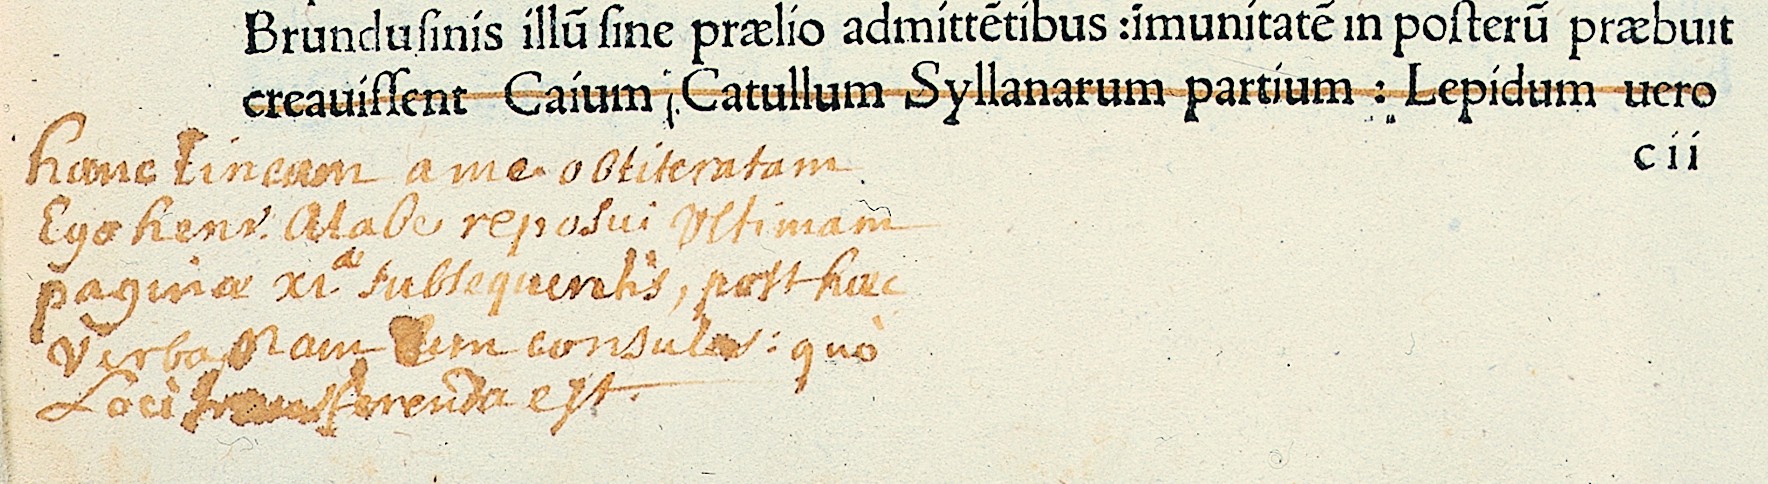 Brunduſinis illū ſine prælio admittētibus :īmunitatē in poſterū præbuit
creauiſſent Caium Catullum Syllanarum partium : Lepidum uero
c ii
hanc lineam a me obliteratam
Ego henr. reposui Ultimam
paginæ xi.ae subsequentis, post hæc
Verba, Nam cum consules: quò
Loci transferenda est.